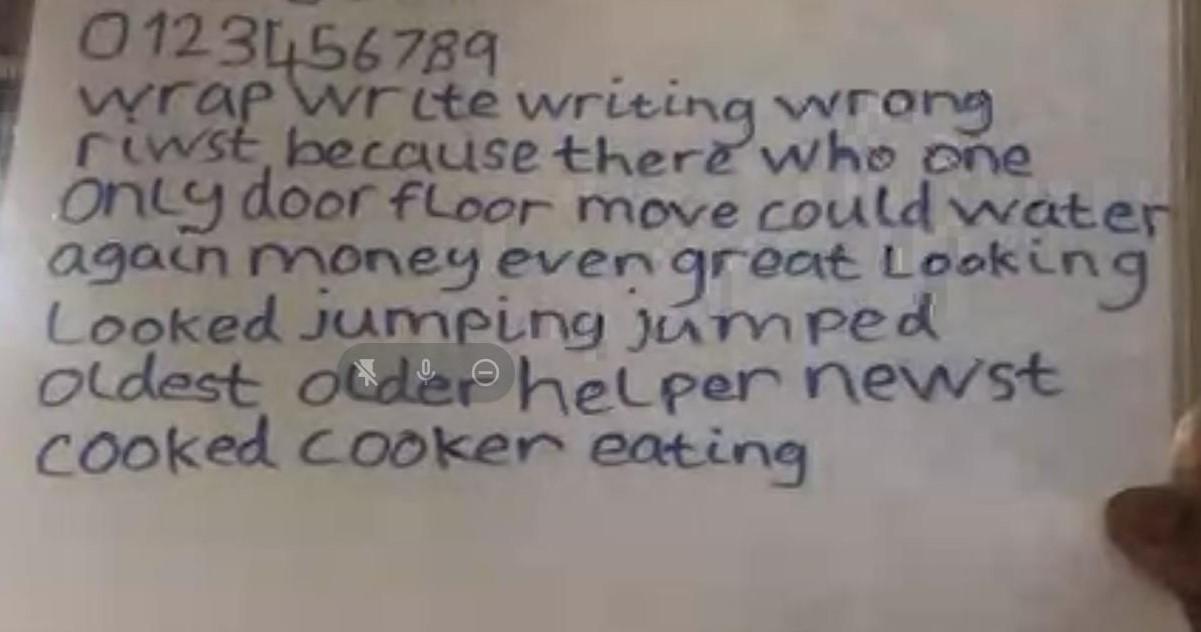 0123456789
wrap write writing wrong
riwst because there who one
only door floor move could water
again money even great Looking
Looked jumping jumped
oldest older helper newst
cooked cooker eating